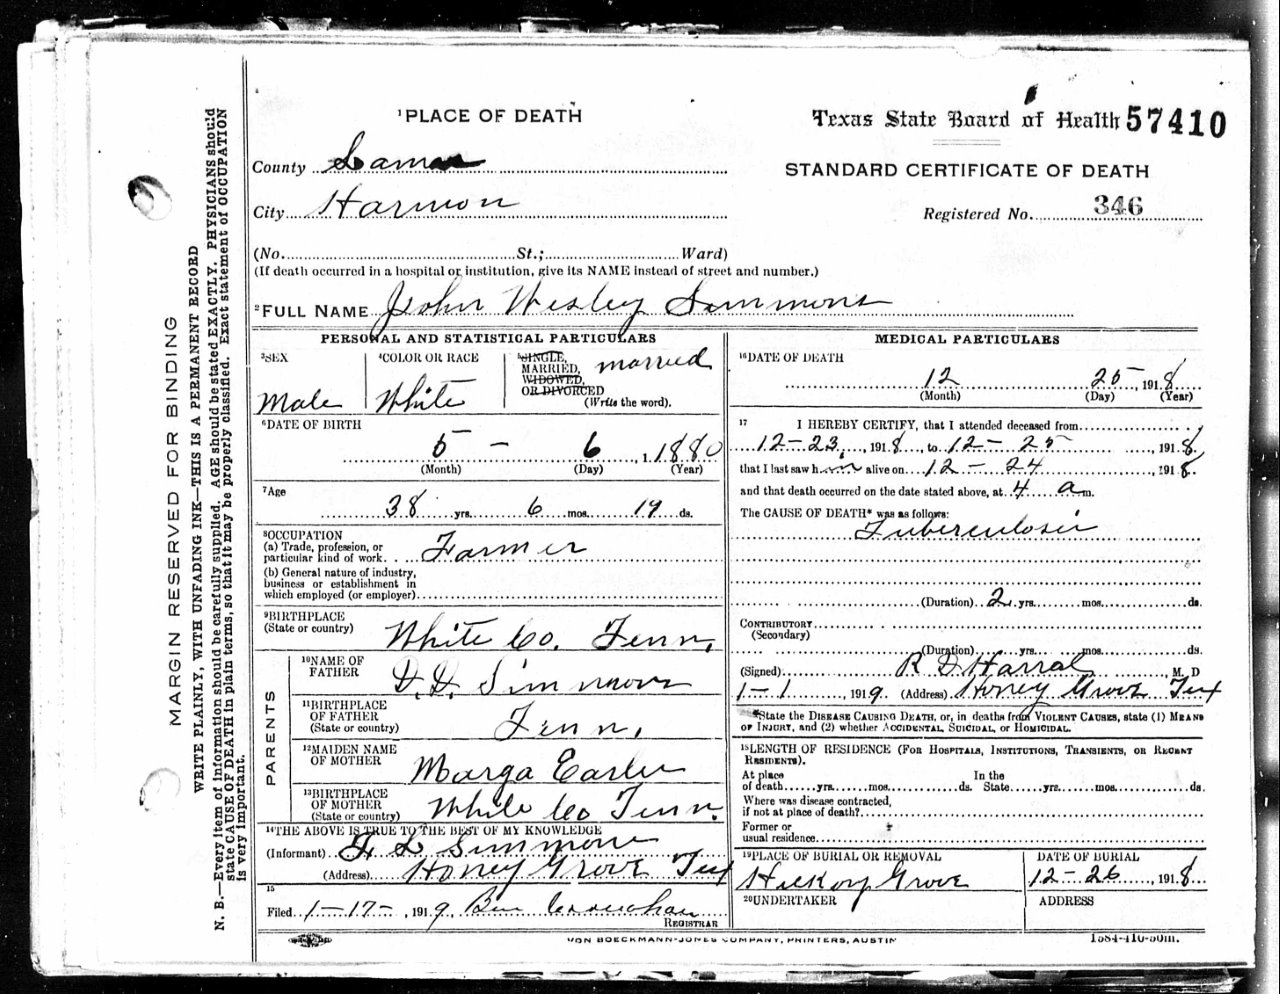 MARGIN RESERVED FOR BINDING
WRITE PLAINLY, WITH UNFADING INK—THIS IS A PERMANENT RECORD
N. B.—Every item of information should be carefully supplied. AGE should be stated EXACTLY. PHYSICIANS should
state CAUSE OF DEATH in plain terms, so that it may be properly classified. Exact statement of OCCUPATION
is very important.
1 PLACE OF DEATH
Texas State Board of Health 57410
County Lamar
STANDARD CERTIFICATE OF DEATH
City Harmon
Registered No. 346
(No. St.; Ward)
(If death occurred in a hospital or institution, give its NAME instead of street and number.)
2 FULL NAME John Wesley Simmons
PERSONAL AND STATISTICAL PARTICULARS
3 SEX
Male
4 COLOR OR RACE
White
5 SINGLE,
MARRIED,
WIDOWED,
OR DIVORCED
married
(Write the word).
6 DATE OF BIRTH
5 - 6, 1880
(Month) (Day) (Year)
7 Age
38 yrs. 6 mos. 19 ds.
8 OCCUPATION
(a) Trade, profession, or
particular kind of work Farmer
(b) General nature of industry,
business or establishment in
which employed (or employer)
9 BIRTHPLACE
(State or country) White Co. Tenn.
PARENTS
10 NAME OF
FATHER D. D. Simmons
11 BIRTHPLACE
OF FATHER
(State or country) Tenn.
12 MAIDEN NAME
OF MOTHER Marga Earles
13 BIRTHPLACE
OF MOTHER
(State or country) White Co Tenn.
14 THE ABOVE IS TRUE TO THE BEST OF MY KNOWLEDGE
(Informant) F L Simmons
(Address) Honey Grove Tex
15
Filed 1-17-, 1919 Ben
REGISTRAR
MEDICAL PARTICULARS
16 DATE OF DEATH
12 25, 1918
(Month) (Day) (Year)
17 I HEREBY CERTIFY, that I attended deceased from
12-23, 1918, to 12-25 1918,
that I last saw him alive on 12-24, 1918,
and that death occurred on the date stated above, at 4 a m.
The CAUSE OF DEATH* was as follows:
Tuberculosis
(Duration) 2 yrs. mos. ds.
CONTRIBUTORY
(Secondary)
(Duration) yrs. mos. ds.
(Signed) R D Harral, M. D
1-1, 1919 (Address) Honey Grove Tex
*State the DISEASE CAUSING DEATH, or, in deaths from VIOLENT CAUSES, state (1) MEANS
OF INJURY, and (2) whether ACCIDENTAL, SUICIDAL, OR HOMICIDAL.
18 LENGTH OF RESIDENCE (FOR HOSPITALS, INSTITUTIONS, TRANSIENTS, OR RECENT
RESIDENTS).
At place In the
of death yrs. mos. ds. State yrs. mos. ds.
Where was disease contracted,
if not at place of death?
Former or
usual residence
19 PLACE OF BURIAL OR REMOVAL
Hickory Grove
DATE OF BURIAL
12-26, 1918
20 UNDERTAKER
ADDRESS
VON BOECKMANN-JONES COMPANY, PRINTERS, AUSTIN
1584-416-50m.